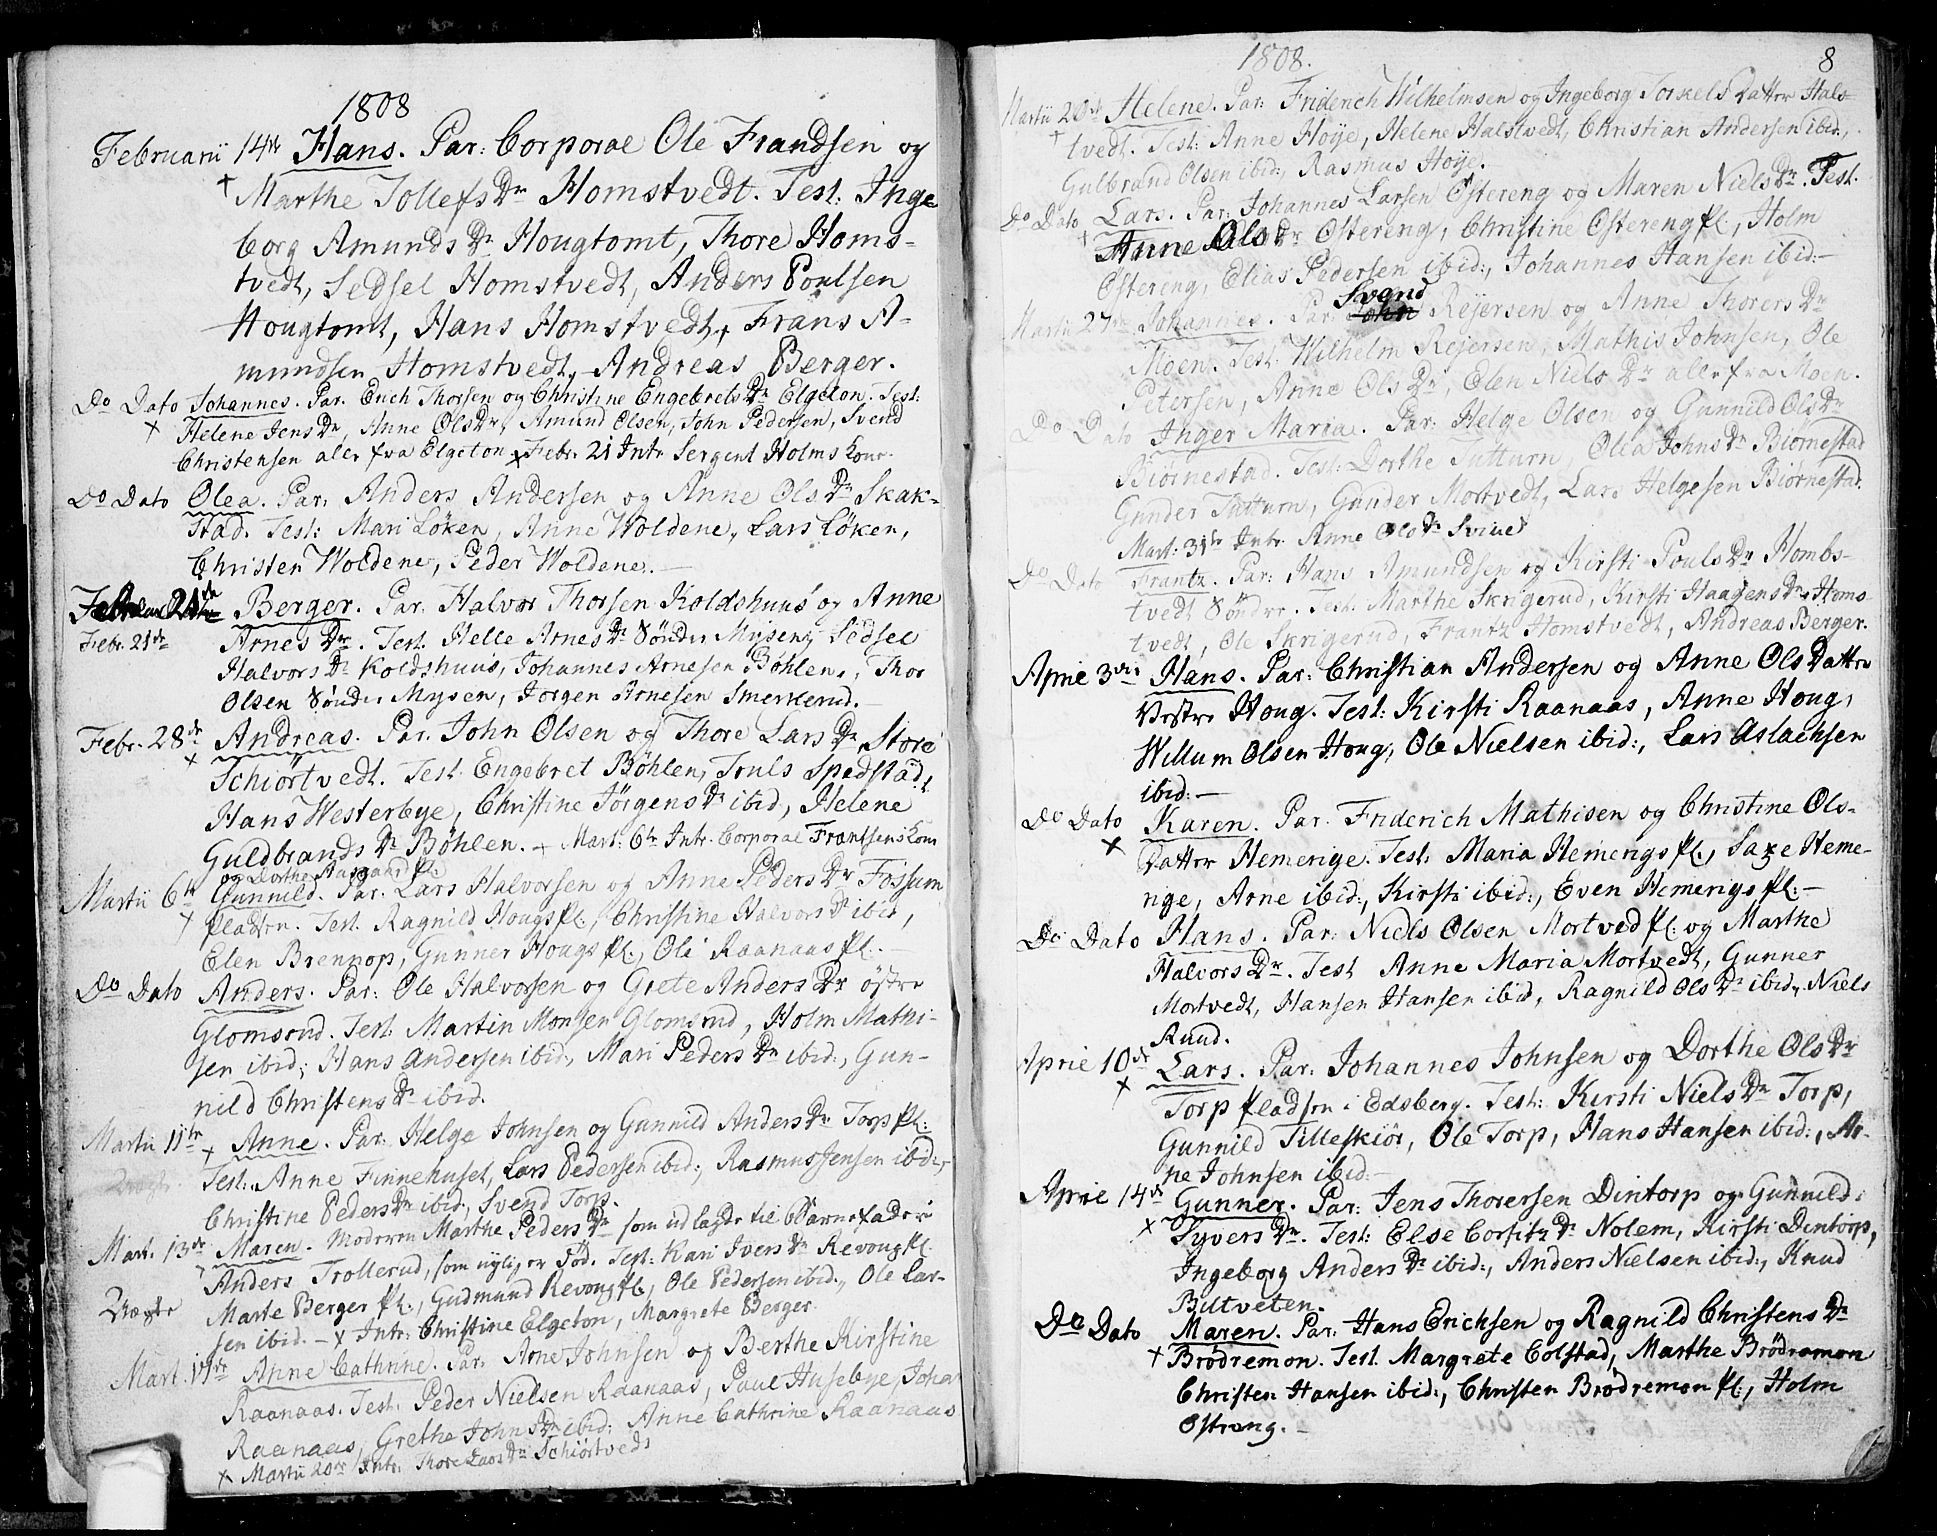 1808
Februarii 14de Hans. Par: Corporal Ole Frandsen og
Marthe TollefsDr Homstvedt. Test: Inge
borg AmundsDr Hougtomt, Thore Homs-
tvedt, Sedsel Homstvedt, Anders Poulsen
Hougtomt, Hans Homstvedt, Frans A-
mundsen Homstvedt, Andreas Berger.
Do Dato Johannes. Par. Erich Thorsen og Christine EngebretsDr Elgeton. Test:
Helene JensDr, Anne OlsDr, Amund Olsen, John Pedersen, Svend
Christensen alle fra Elgeton x Febr. 21 Intr. Sergent Holms Kone
Do Dato Olea. Par: Anders Andersen og Anne OlsDr Skak-
stad. Test: Mari Löken, Anne Woldene, Lars Löken,
Christen Woldene, Peder Woldene. —
Berger. Par. Halvor Thorsen Koldshuus og Anne
Febr. 21de ArnesDr. Test. Helle ArnesDr Sönder Mysen, Sedsel
HalvorsDr Koldshuus, Johannes Arnesen Böhlen, Thor
Olsen Sönder Mysen, Jorgen Arnesen Smerkerud. —
Febr. 28de Andreas. Par. John Olsen og Thore LarsDr Store
Schiörtvedt. Test. Engebret Böhlen, Truls Spedstad,
Hans Westerbye, Christine JörgensDr ibid, Helene
GuldbrandsDr Böhlen. — Mart: 6te Intr. Corporal Frantsens Kone
og Dorthe Aasgaard Pl.
Martii 6te Gunnild. Par. Lars Halvorsen og Anne PedersDr Fossum
pladsen. Test. Ragnild Hougs Pl., Christine HalvorsDr ibid,
Elen Brennop, Gunner Hougs Pl, Ole Raanaas Pl. —
Do Dato Anders. Par: Ole Halvorsen og Grete AndersDr östre
Glomsrud. Test. Martin Monsen Glomsrud, Holm Mathi-
sen ibid., Hans Andersen ibid., Mari PedersDr ibid:, Gun-
nild ChristensDr ibid.
Martii 11te Anne. Par: Helge Johnsen og Gunnild AndersDr Torp Pl:
Test: Anne Finnehuset, Lars Pedersen ibid:, Rasmus Jensen ibid:,
Christine PedersDr ibid, Svend Torp.
Mart. 13de Maren. Moderen Marthe PedersDr som udlagde til Barnefader
Anders Trollerud, som nylig er död. Test: Kari IversDr Revoug Pl.
Uægte Marte Berger Pl., Gudmund Revoug Pl, Ole Pedersen ibid., Ole Lar-
sen ibid. — x Intr: Christine Elgeton, Margrete Berger.
Mart. 17de Anne Cathrine. Par. Arne Johnsen og Berthe Kirstine
Raanaas. Test. Peder Nielsen Raanaas, Paul Husebye, Johan
Raanaas, Grethe JohnsDr ibid: Anne Cathrine Raanaas
x Martii 20de Intr: Thore LarsDr Schiörtvedt
1808. 8
Martii 20de Helene. Par: Friderich Wilhelmsen og Ingeborg Torkels Datter Hals-
tvedt. Test: Anne Höye, Helene Halstvedt, Christian Andersen ibid:,
Gulbrand Olsen ibid:, Rasmus Höye.
Do Dato Lars. Par: Johannes Larsen Östereng og Maren NielsDr. Test.
Anne OlsDr Östereng, Christine Östereng Pl, Holm
Östereng, Elias Pedersen ibid:, Johannes Hansen ibid: —
Svend
Martii 27de Johannes. Par: John Reiersen og Anne ThorersDr
Moen. Test: Wilhelm Reiersen, Mathis Johnsen, Ole
Petersen, Anne OlsDr, Elen NielsDr alle fra Moen.
Do Dato Inger Maria. Par: Helge Olsen og Gunnild OlsDr
Biörnestad. Test: Dorthe Tutturn, Olea JohnsDr Biörnestad
Gunder Tutturn, Gunder Mortvedt, Lars Helgesen Biörnestad.
Mart: 31te Intr. Anne OlsDr
Do Dato Frantz. Par: Hans Amundsen og Kirsti PoulsDr Hombs-
tvedt Söndre. Test: Marthe Skrigerud, Kirsti HaagensDr Homs
tvedt, Ole Skrigerud, Frantz Homstvedt, Andreas Berger.
April 3die Hans. Par: Christian Andersen og Anne Ols Datter
Vestre Houg. Test: Kirsti Raanaas, Anne Houg,
Willum Olsen Houg, Ole Nielsen ibid:, Lars Aslachsen
ibid: —
Do Dato Karen. Par. Friderich Mathisen og Christine Ols-
Datter Hemerige. Test: Maria Hemerigs Pl., Saxe Heme-
rige, Arne ibid:, Kirsti ibid:, Even Hemerigs Pl: —
Do Dato Hans. Par: Niels Olsen Mortved Pl: og Marthe
HalvorsDr. Test Anne Maria Mortvedt, Gunner
Mortvedt, Hansen Hansen ibid, Ragnild OlsDr ibid:, Niels
Ruud.
April 10de Lars. Par: Johannes Johnsen og Dorthe OlsDr
Torp Pladsen i Edsberg. Test: Kirsti NielsDr Torp,
Gunnild Tilleskiör, Ole Torp, Hans Hansen ibid:, Ar-
ne Johnsen ibid: —
April 14de Gunner. Par: Jens Thorersen Dintorp og Gunnild
SyversDr. Test: Else CorfitzDr Nolem, Kirsti Dintorp,
Ingeborg AndersDr ibid:, Anders Nielsen ibid:, Knud
Biltveten.
Do Dato Maren. Par. Hans Erichsen og Ragnild ChristensDr
Brödremon. Test. Margrete Colstad, Marthe Brödremon
Christen Hansen ibid:, Christen Brödremon Pl, Holm
Östreng. —